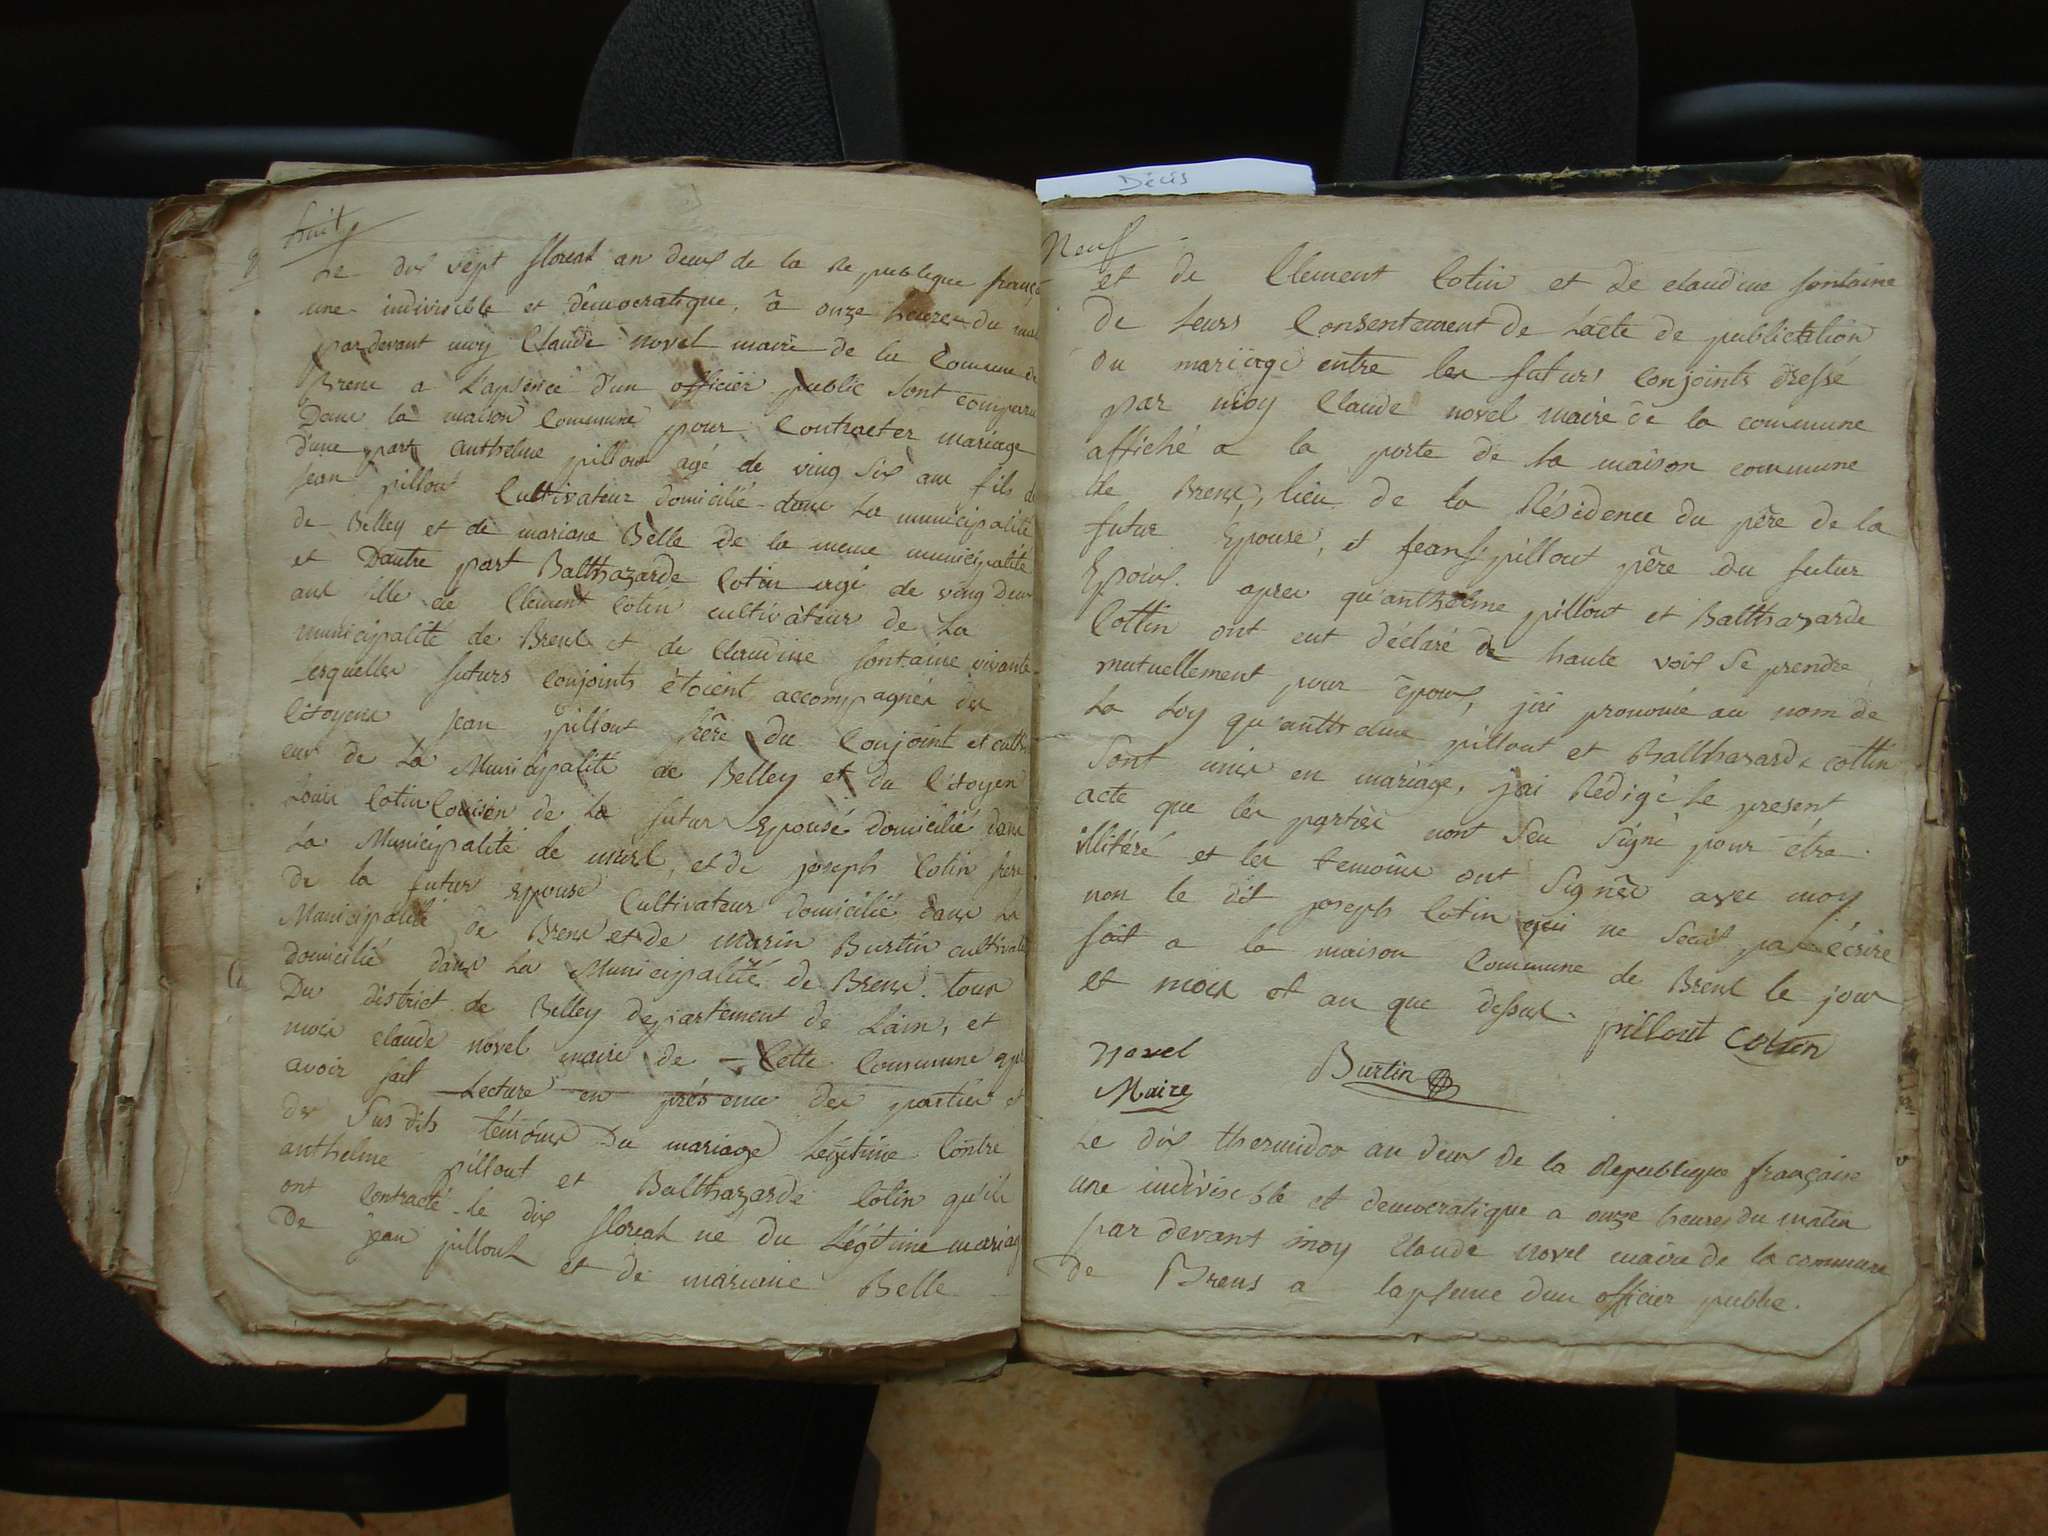 Décès
huit
Le dix sept floreal an deux de la Republique françai
une indivisible et démocratique, à onze heures du ma
pardevant moy Claude novel maire de la Comune de
Brens a L'apsence d'un officier public sont comparu
Dans la maison Commune pour Contracter mariage
d'une part anthelme pillout agé de ving six ans fils de
jean pillout Cultivateur domicilié dans La municipalité
de Belley et de mariane Belle de la meme municipalité
et Dautre part Balthazarde Cotin agé de ving deux
ans fille de Clement Cotin cultivateur de La
municipalité de Brens et de Claudine fontaine vivante
esquelles futurs conjoints étoient accompagnés des
Citoyens jean pillout père du Conjoint et cultiv
eur de La Municipalité de Belley et du Citoyen
Louis Cotin Cousin de La futur Epouse domicilié dans
La Municipalité de et de joseph Cotin frere
De la futur Epouse Cultivateur domicilié dans La
Municipalité de Brens et de Marin Burtin cultivate
domicilié dans La Municipalité de Brens. tous
Du district de Belley departement de Lain, et
moix claude novel maire de Cette Commune aprè
avoir fait Lecture en présence des parties et
des Sus dits témoins Du mariage Légitime Contre
anthelme pillout et Balthazarde Cotin qu'ils
ont contracté le dix floreal né du Légitime mariag
De jean pillout et de mariane Belle
Neuf
et de Clement Cotin et de claudine fontaine
De Leurs Consentement de Lacte de publication
Du mariage entre les futurs conjoints dressé
par moy Claude novel maire de la commune
affiché a la porte de la maison commune
de Brens, lieu de la Résidence du père de la
futur Epouse, et jean pillout père du futur
Epoux. apres qu'anthelme pillout et Balthazarde
Cottin ont eut déclaré de haute voix Se prendre
mutuellement pour Epoux, jai prononcé au nom de
La Loy qu'anthelme pillout et Balthazarde cottin
Sont unis en mariage, jai Rédigé Le present
acte que les parties nont Seu Signé pour être
illitéré et les temoins ont Signés avec moy
non le dit joseph Cotin qui ne Scait pas écrire
fait a la maison Commune de Brens le jour
et mois et an que dessus.
pillout Cottin
Novel
Maire
Burtin
Le dix thermidor an deux de la Republique française
une indivisible et democratique a onze heures du matin
par devant moy Claude novel maire de la commune
De Brens a lapsence dun officier public.